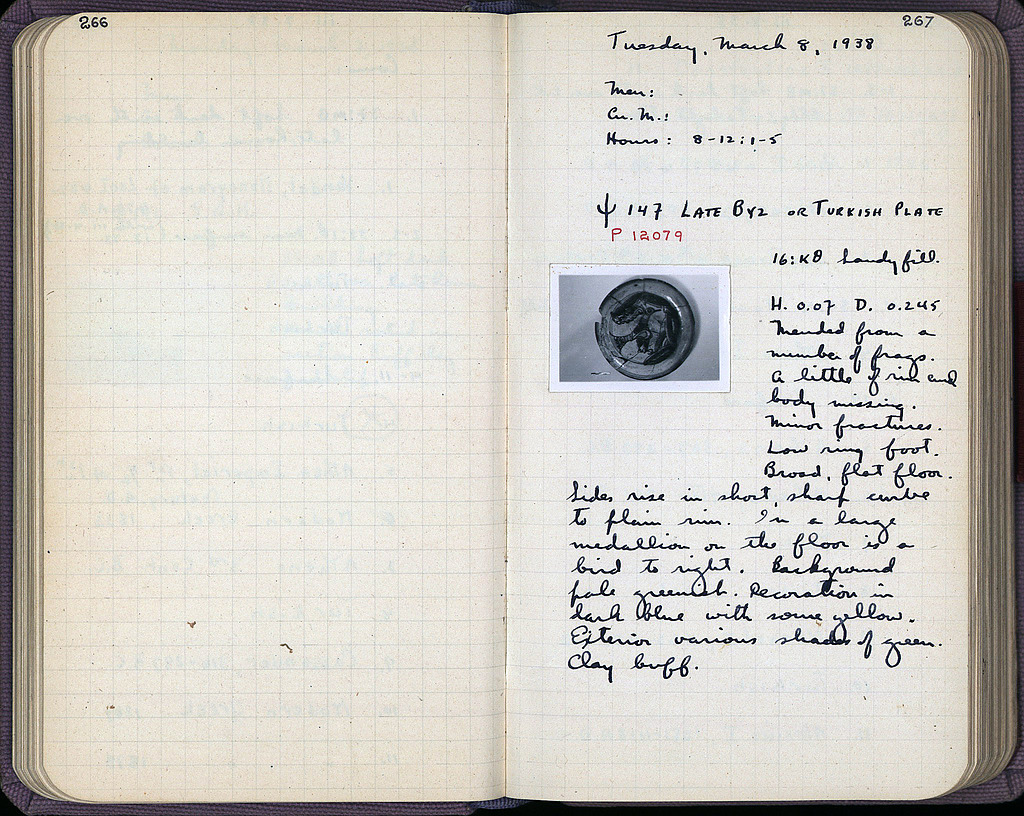 266
267
Tuesday, March 8, 1938
Men:
Cu. M.:
Hours: 8-12:1-5
ψ 147 LATE BYZ OR TURKISH PLATE
P 12079
16:KΘ Sandy fill.
H. 0.07 D. 0.245
Mended from a
number of frags.
A little of rim and
body missing.
Minor fractures.
Low ring foot.
Broad, flat floor.
Sides rise in short, sharp curve
to plain rim. In a large
medallion on the floor is a
bird to right. Background
pale greenish. Decoration in
dark blue with some yellow.
Exterior various shades of green.
Clay buff.